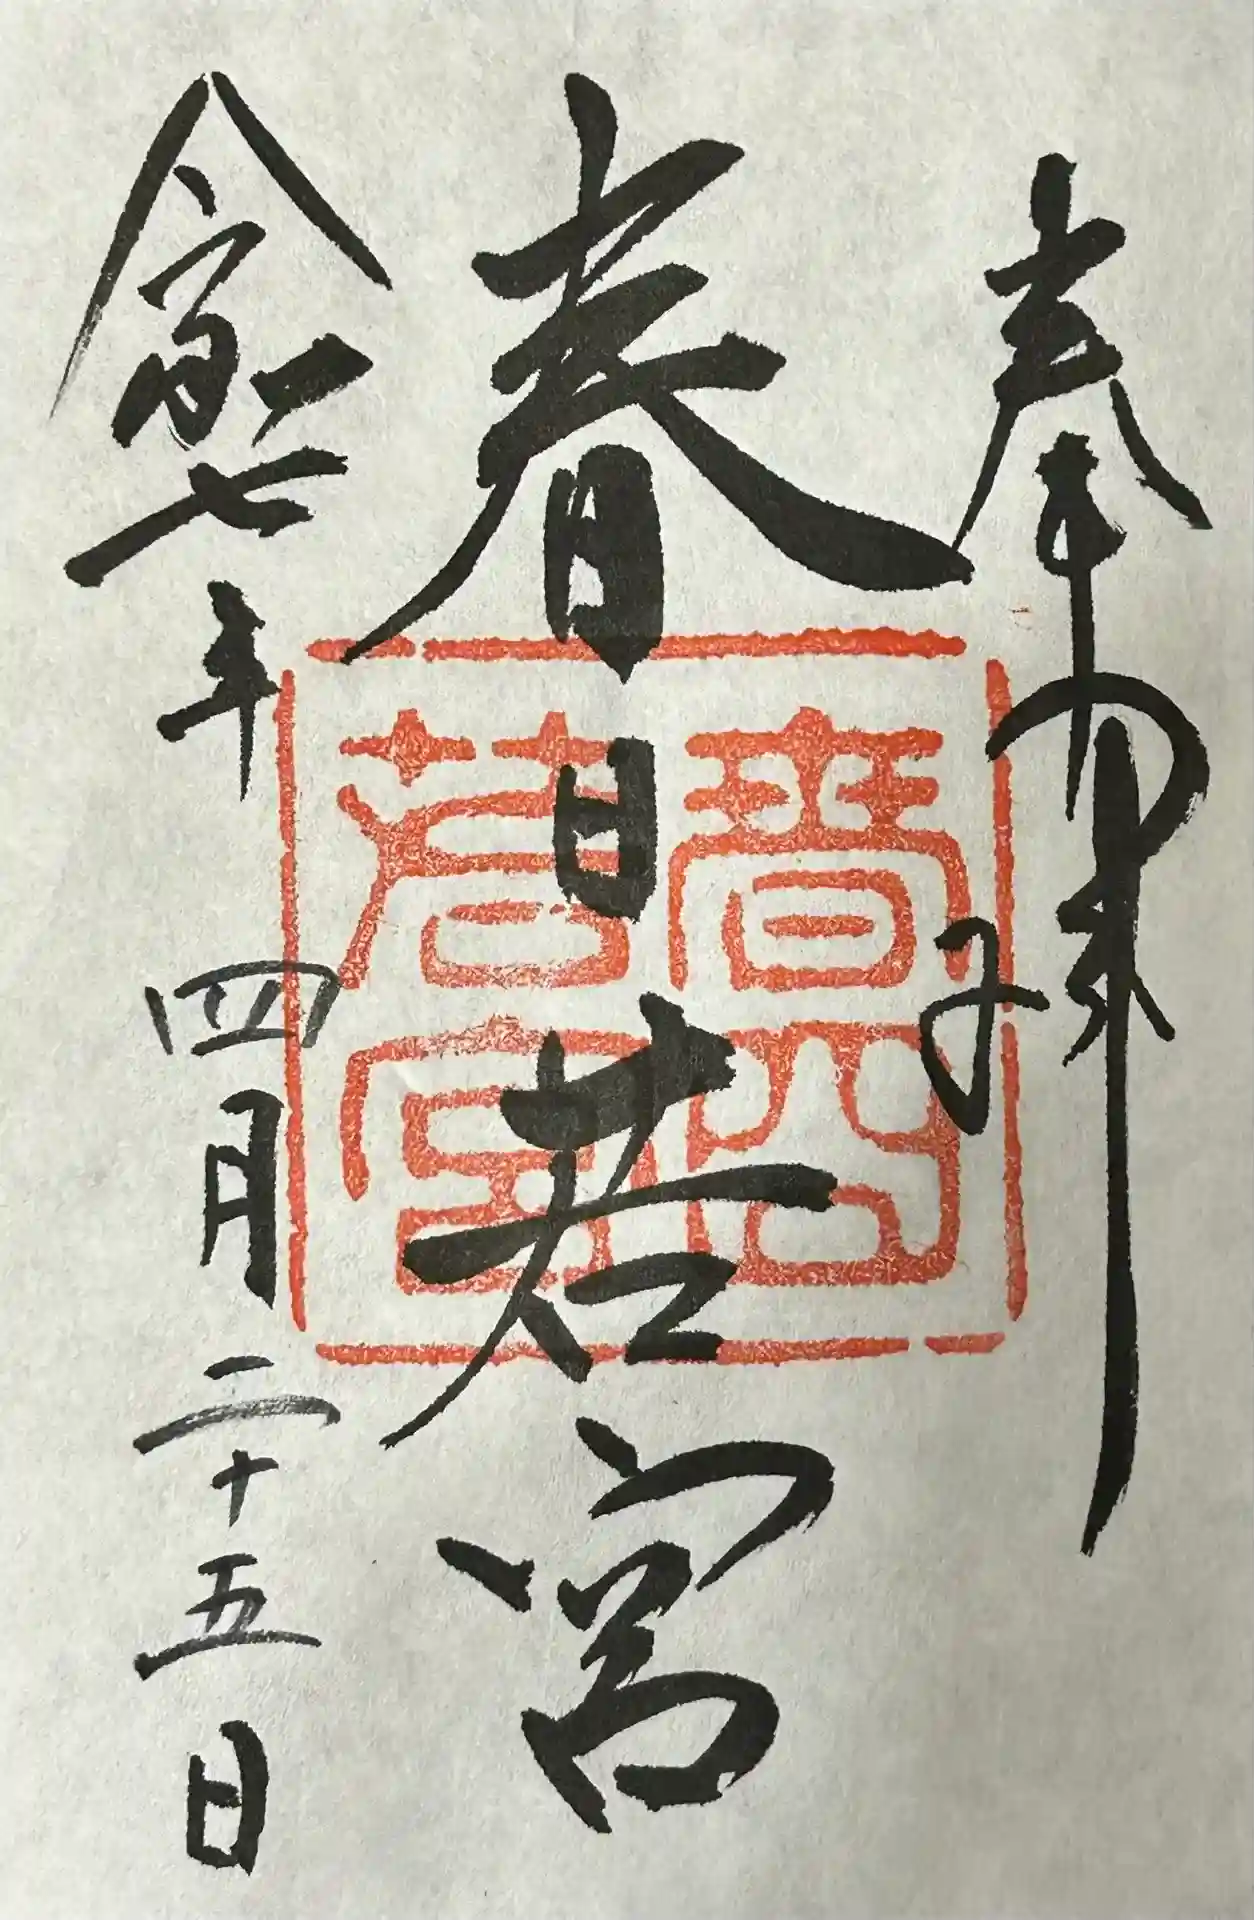 奉拜
春日若宮
令和七年四月二十五日
若宮